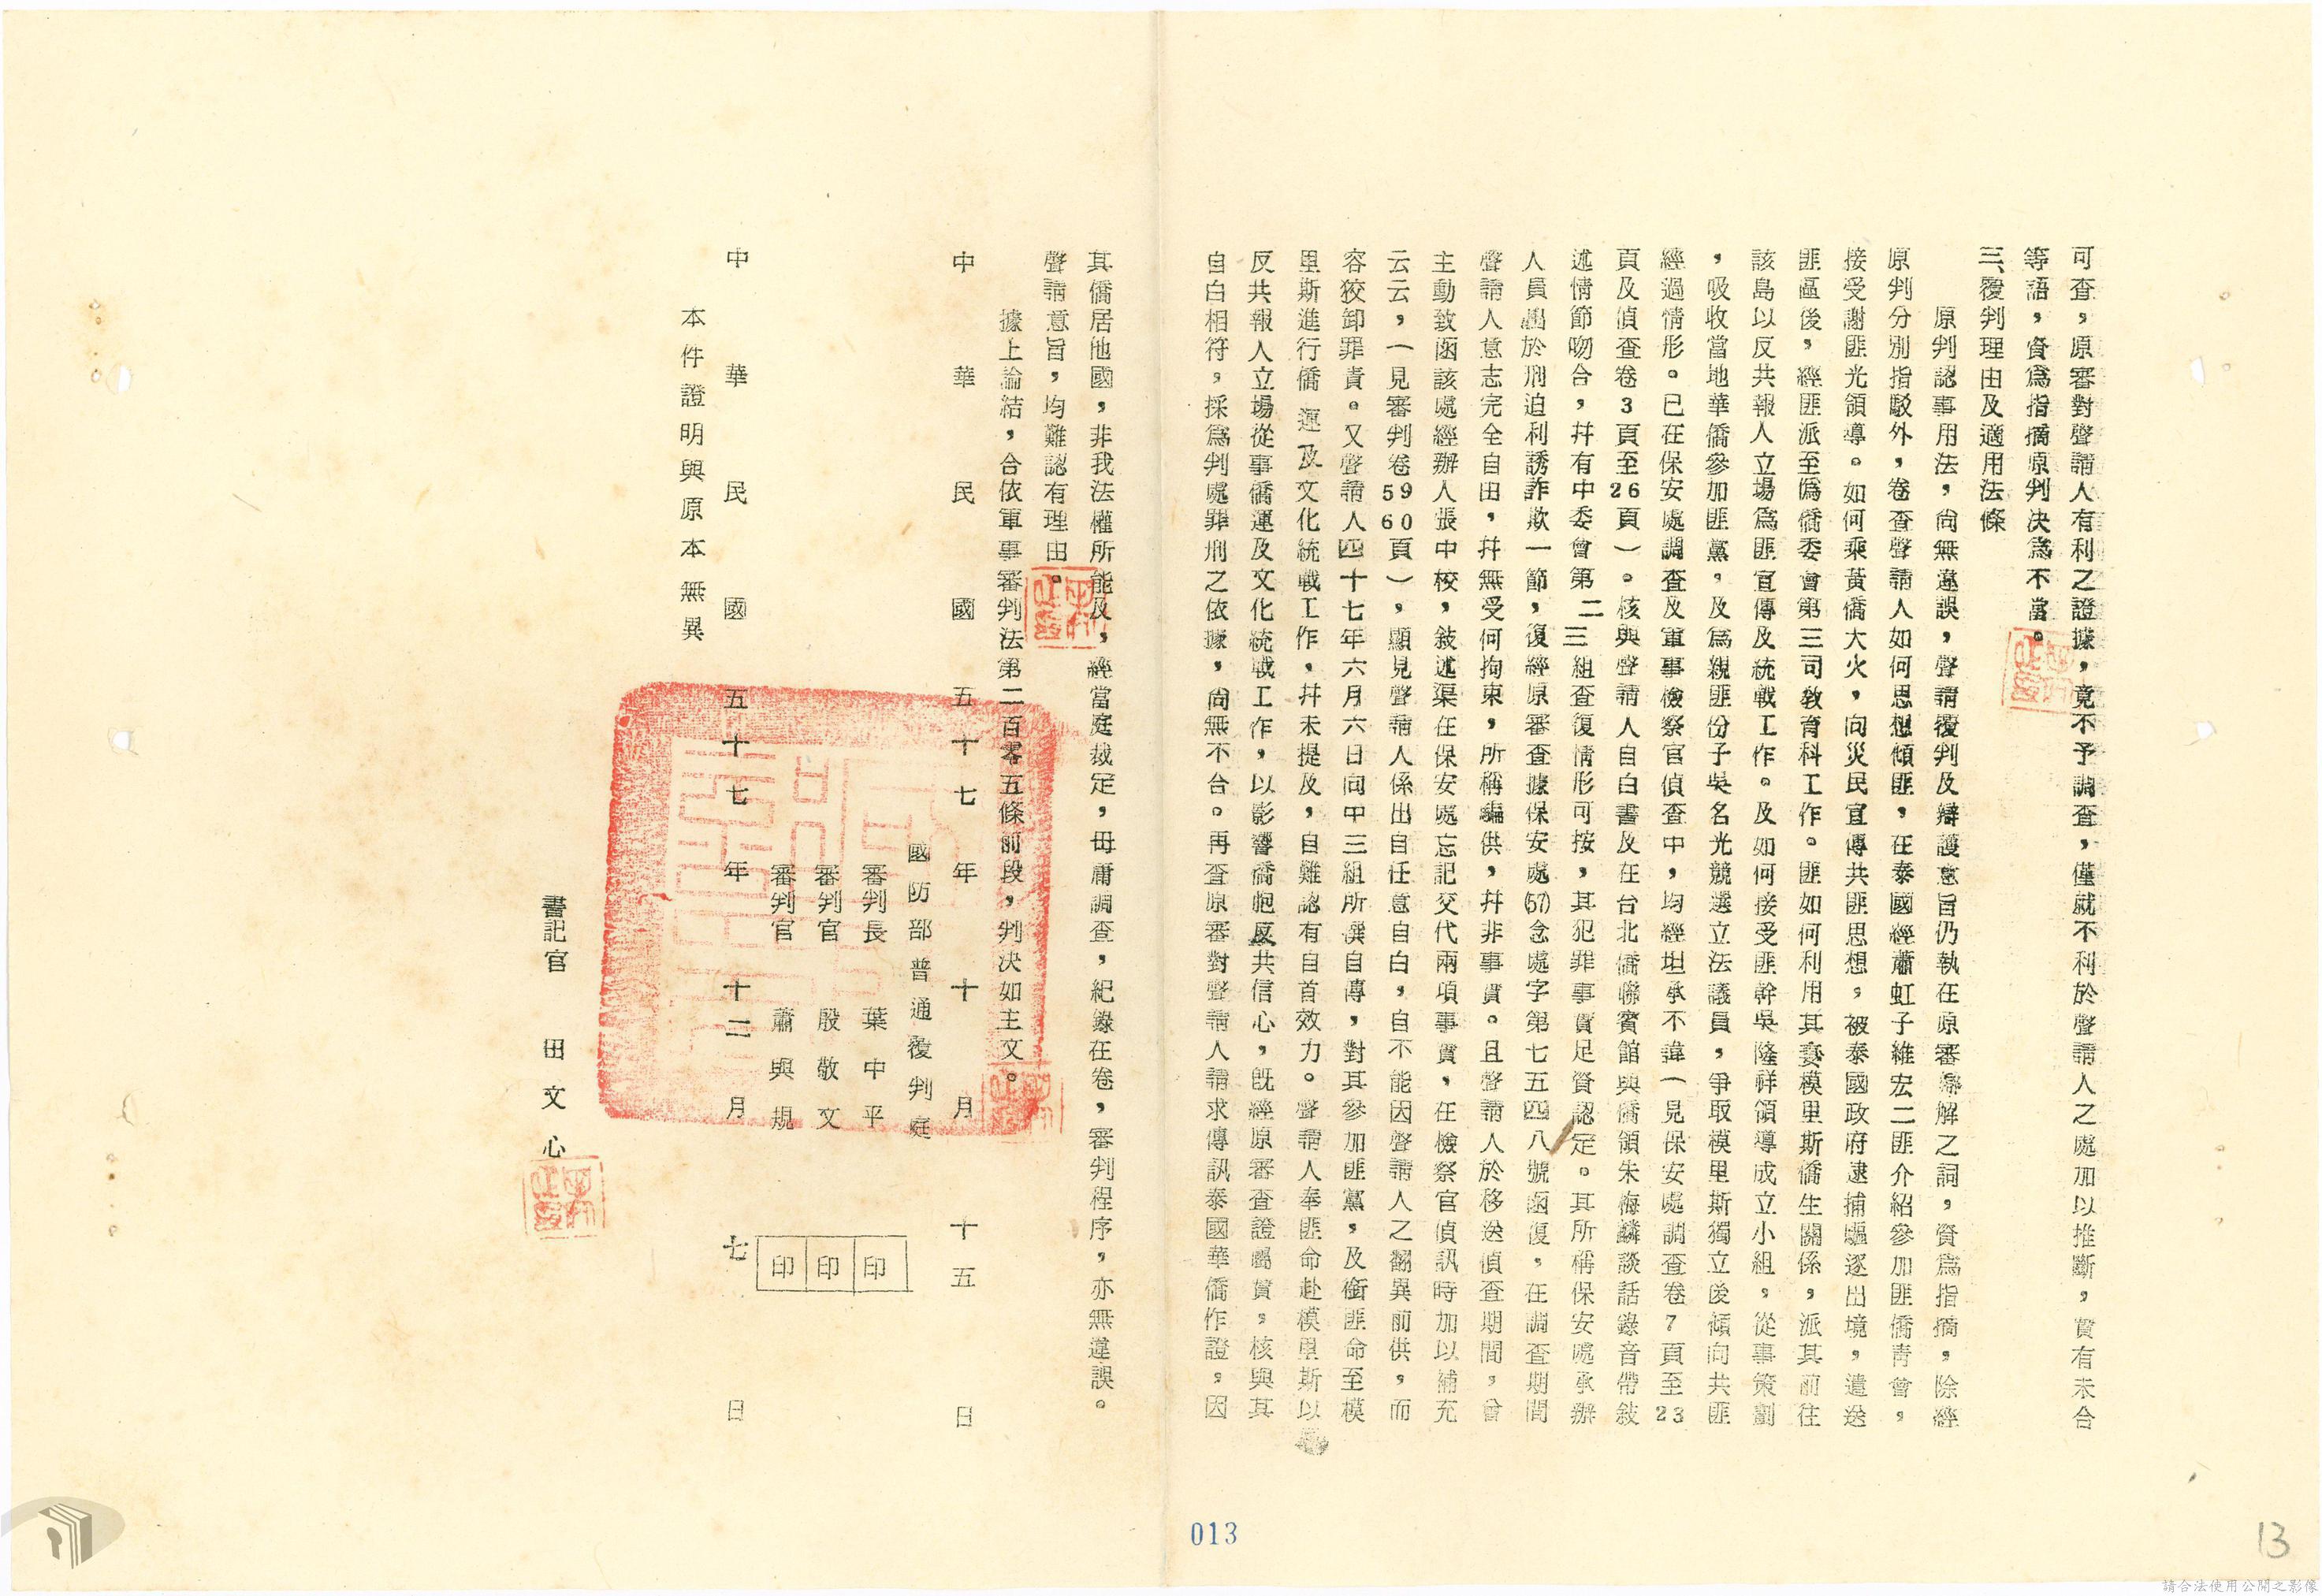 可查，原審對聲請人有利之證據，竟不予調查，僅就不利於聲請人之處加以推斷，實有未合
等語，資為指摘原判決為不當。
三、覆判理由及適用法條
原判認事用法，尚無違誤，聲請覆判及辯護意旨仍執在原審辯解之詞，資為指摘，除經
原判分別指駁外，卷查聲請人如何思想傾匪，在泰國經蕭虹子維宏二匪介紹參加匪僑青會，
接受謝匪光領導。如何乘黃僑大火，向災民宣傳共匪思想，被泰國政府逮捕驅逐出境，遣送
匪區後，經匪派至偽僑委會第三司教育科工作。匪如何利用其妻模里斯僑生關係，派其前往
該島以反共報人立場為匪宣傳及統戰工作。及如何接受匪幹吳隆祥領導成立小組，從事策劃
，吸收當地華僑參加匪黨。及為親匪份子吳名光競選立法議員，爭取模里斯獨立後傾向共匪
經過情形。已在保安處調查及軍事檢察官偵查中，均經坦承不諱（見保安處調查卷7頁至23
頁及偵查卷3頁至26頁）。核與聲請人自白書及在台北僑聯賓館與僑領朱梅麟談話錄音帶敍
述情節吻合，幷有中委會第二三組查復情形可按，其犯罪事實足資認定。其所稱保安處承辦
人員出於刑迫利誘詐欺一節，復經原審查據保安處(57)念處字第七五四八號函復，在調查期間
聲請人意志完全自由，幷無受何拘束，所稱騙供，幷非事實。且聲請人於移送偵查期間，曾
主動致函該處經辦人張中校，敍述渠在保安處忘記交代兩項事實，在檢察官偵訊時加以補充
云云，（見審判卷59 60頁），顯見聲請人係出自任意自白，自不能因聲請人之翻異前供，而
容狡卸罪責。又聲請人四十七年六月六日向中三組所撰自傳，對其參加匪黨，及銜匪命至模
里斯進行僑運及文化統戰工作，幷未提及，自難認有自首效力。聲請人奉匪命赴模里斯以
反共報人立場從事僑運及文化統戰工作，以影響僑胞反共信心，既經原審查證屬實，核與其
自白相符，採為判處罪刑之依據，尚無不合。再查原審對聲請人請求傳訊泰國華僑作證，因
013
13
其僑居他國，非我法權所能及，經當庭裁定，毋庸調查，紀錄在卷，審判程序，亦無違誤。
聲請意旨，均難認有理由。
據上論結，合依軍事審判法第二百零五條前段，判決如主文。
中華民國五十七年十月十五日
國防部普通覆判庭
審判長 葉中平 印
審判官 殷敬文 印
審判官 蕭與規 印
中華民國五十七年十二月七日
本件證明與原本無異
書記官 田文心
請合法使用公開之影像